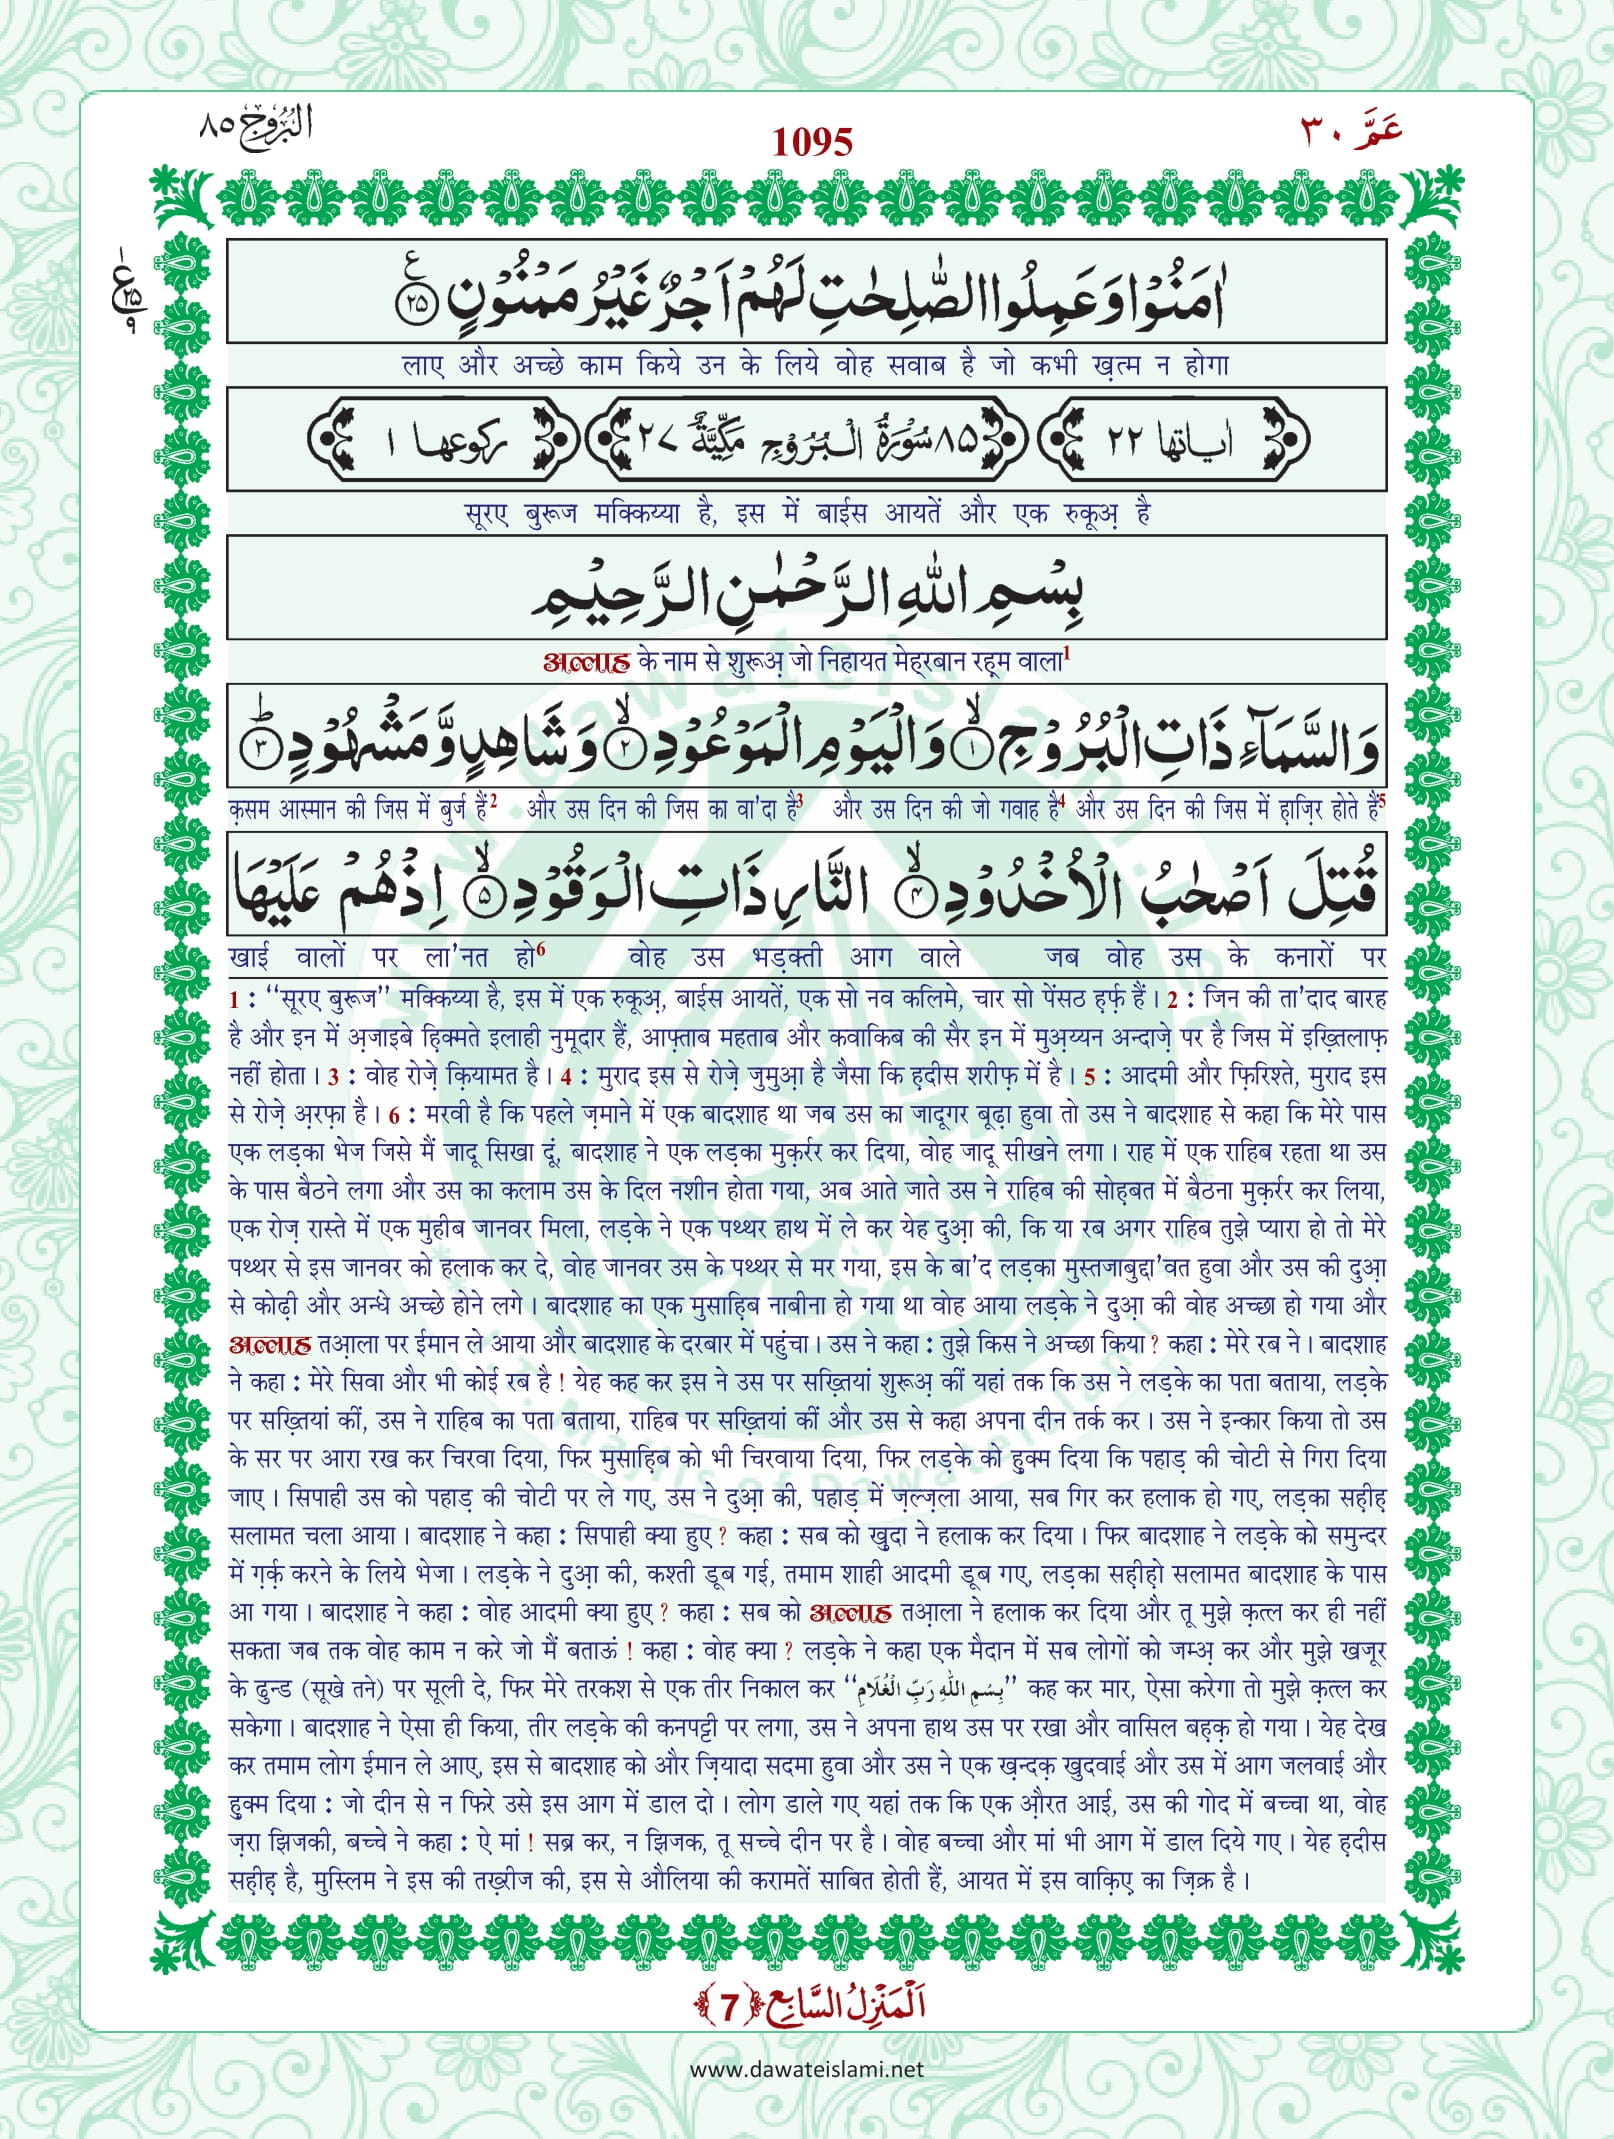 البروج ٨٥
1095
عَمَّ ٣٠
ع ٢٥ ٩
اٰمَنُوْا وَ عَمِلُوا الصّٰلِحٰتِ لَهُمْ اَجْرٌ غَیْرُ مَمْنُوْنٍ ﴿٢٥﴾
लाए और अच्छे काम किये उन के लिये वोह सवाब है जो कभी ख़त्म न होगा
اٰیاتها ٢٢ ٨٥ سُوْرَةُ الْبُرُوْجِ مَكِّیَّةٌ ٢٧ ركوعها ١
सूरए बुरूज मक्किय्या है, इस में बाईस आयतें और एक रुकूअ़ है
بِسْمِ اللّٰهِ الرَّحْمٰنِ الرَّحِیْمِ
अल्लाह के नाम से शुरूअ़ जो निहायत मेह्‌रबान रह़्म वाला1
وَ السَّمَآءِ ذَاتِ الْبُرُوْجِ ﴿١﴾ وَ الْیَوْمِ الْمَوْعُوْدِ ﴿٢﴾ وَ شَاهِدٍ وَّ مَشْهُوْدٍ ﴿٣﴾
क़सम आस्मान की जिस में बुर्ज हैं2 और उस दिन की जिस का वा'दा है3 और उस दिन की जो गवाह है4 और उस दिन की जिस में ह़ाज़िर होते हैं5
قُتِلَ اَصْحٰبُ الْاُخْدُوْدِ ﴿٤﴾ النَّارِ ذَاتِ الْوَقُوْدِ ﴿٥﴾ اِذْ هُمْ عَلَیْهَا
खाई वालों पर ला'नत हो6 वोह उस भड़क्ती आग वाले जब वोह उस के कनारों पर
1 : “सूरए बुरूज” मक्किय्या है, इस में एक रुकूअ़, बाईस आयतें, एक सो नव कलिमे, चार सो पेंसठ ह़र्फ़ हैं। 2 : जिन की ता'दाद बारह
है और इन में अ़जाइबे ह़िक्मते इलाही नुमूदार हैं, आफ़्ताब महताब और कवाकिब की सैर इन में मुअ़य्यन अन्दाज़े पर है जिस में इख़्तिलाफ़
नहीं होता। 3 : वोह रोज़े क़ियामत है। 4 : मुराद इस से रोज़े जुमुआ़ है जैसा कि ह़दीस शरीफ़ में है। 5 : आदमी और फ़िरिश्ते, मुराद इस
से रोज़े अ़रफ़ा है। 6 : मरवी है कि पहले ज़माने में एक बादशाह था जब उस का जादूगर बूढ़ा हुवा तो उस ने बादशाह से कहा कि मेरे पास
एक लड़का भेज जिसे मैं जादू सिखा दूं, बादशाह ने एक लड़का मुक़र्रर कर दिया, वोह जादू सीखने लगा। राह में एक राहिब रहता था उस
के पास बैठने लगा और उस का कलाम उस के दिल नशीन होता गया, अब आते जाते उस ने राहिब की सोह़बत में बैठना मुक़र्रर कर लिया,
एक रोज़ रास्ते में एक मुहीब जानवर मिला, लड़के ने एक पथ्थर हाथ में ले कर येह दुआ़ की, कि या रब अगर राहिब तुझे प्यारा हो तो मेरे
पथ्थर से इस जानवर को हलाक कर दे, वोह जानवर उस के पथ्थर से मर गया, इस के बा'द लड़का मुस्तजाबुद्दा'वत हुवा और उस की दुआ़
से कोढ़ी और अन्धे अच्छे होने लगे। बादशाह का एक मुसाह़िब नाबीना हो गया था वोह आया लड़के ने दुआ़ की वोह अच्छा हो गया और
अल्लाह तआ़ला पर ईमान ले आया और बादशाह के दरबार में पहुंचा। उस ने कहा : तुझे किस ने अच्छा किया? कहा : मेरे रब ने। बादशाह
ने कहा : मेरे सिवा और भी कोई रब है! येह कह कर इस ने उस पर सख़्तियां शुरूअ़ कीं यहां तक कि उस ने लड़के का पता बताया, लड़के
पर सख़्तियां कीं, उस ने राहिब का पता बताया, राहिब पर सख़्तियां कीं और उस से कहा अपना दीन तर्क कर। उस ने इन्कार किया तो उस
के सर पर आरा रख कर चिरवा दिया, फिर मुसाह़िब को भी चिरवाया दिया, फिर लड़के को हुक्म दिया कि पहाड़ की चोटी से गिरा दिया
जाए। सिपाही उस को पहाड़ की चोटी पर ले गए, उस ने दुआ़ की, पहाड़ में ज़ल्ज़ला आया, सब गिर कर हलाक हो गए, लड़का सह़ीह़
सलामत चला आया। बादशाह ने कहा : सिपाही क्या हुए? कहा : सब को ख़ुदा ने हलाक कर दिया। फिर बादशाह ने लड़के को समुन्दर
में ग़र्क़ करने के लिये भेजा। लड़के ने दुआ़ की, कश्ती डूब गई, तमाम शाही आदमी डूब गए, लड़का सह़ीह़ो सलामत बादशाह के पास
आ गया। बादशाह ने कहा : वोह आदमी क्या हुए? कहा : सब को अल्लाह तआ़ला ने हलाक कर दिया और तू मुझे क़त्ल कर ही नहीं
सकता जब तक वोह काम न करे जो मैं बताऊं! कहा : वोह क्या? लड़के ने कहा एक मैदान में सब लोगों को जम्अ़ कर और मुझे खजूर
के ढुन्ड (सूखे तने) पर सूली दे, फिर मेरे तरकश से एक तीर निकाल कर “بِسْمِ اللّٰهِ رَبِّ الْغُلَامِ” कह कर मार, ऐसा करेगा तो मुझे क़त्ल कर
सकेगा। बादशाह ने ऐसा ही किया, तीर लड़के की कनपट्टी पर लगा, उस ने अपना हाथ उस पर रखा और वासिल बह़क़ हो गया। येह देख
कर तमाम लोग ईमान ले आए, इस से बादशाह को और ज़ियादा सदमा हुवा और उस ने एक ख़न्दक़ खुदवाई और उस में आग जलवाई और
हुक्म दिया : जो दीन से न फिरे उसे इस आग में डाल दो। लोग डाले गए यहां तक कि एक औ़रत आई, उस की गोद में बच्चा था, वोह
ज़रा झिजकी, बच्चे ने कहा : ऐ मां! सब्र कर, न झिजक, तू सच्चे दीन पर है। वोह बच्चा और मां भी आग में डाल दिये गए। येह ह़दीस
सह़ीह़ है, मुस्लिम ने इस की तख़्रीज की, इस से औलिया की करामतें साबित होती हैं, आयत में इस वाक़िए का ज़िक्र है।
اَلْمَنْزِلُ السَّابِع ﴿7﴾
www.dawateislami.net